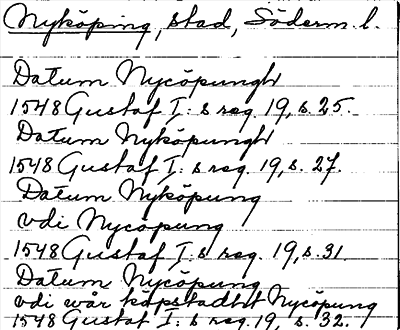 Nyköping, stad, Söderm. l.
Datum Nycöpungh
1548 Gustaf I:s reg. 19, s. 25.
Datum Nyköpungh
1548 Gustaf I:s reg. 19, s. 27.
Datum Nyköpung
vdi Nycöpung
1548 Gustaf I:s reg. 19, s. 31.
Datum Nycöpung
vdi wår köpstadht Nycöpung
1548 Gustaf I:s reg. 19, s. 32.